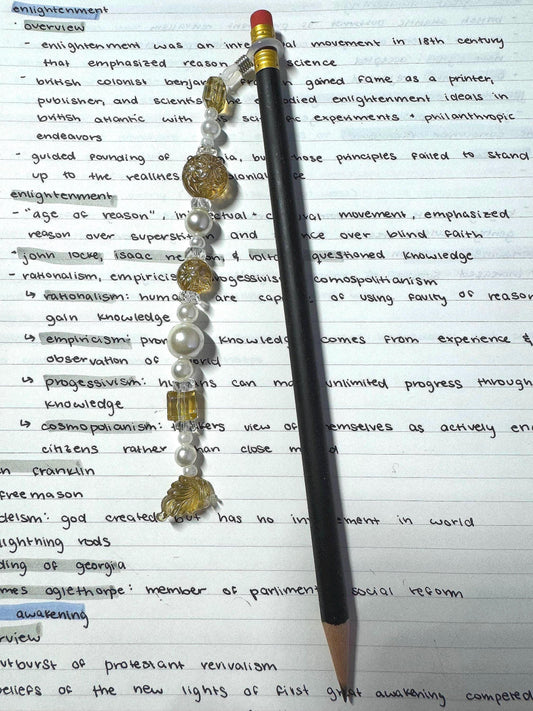 enlightenment
· overview
- enlightenment was an inte al movement in 18th century
that emphasized reason science
- british colonist benjam n gained fame as a printer,
publisher, and scientis odied enlightenment ideals in
british atlantic with s experiments + philanthropic
endeavors
- guided founding of ia, but hose principles failed to stand
up to the realities olonial life
enlightenment
- "age of reason", in ectual + c al movement, emphasized
reason over supersti nce over blind faith
- john locke, isaac ne n, & volt questioned knowledge
- rationalism, empiricis rogessivis cosmospolitianism
↳ rationalism: huma are cap of using faulty of reason
gain knowledge
↳ empiricism: pro knowled comes from experience &
observation of orld
↳ progessivism: hu ns can ma unlimited progress through
knowledge
↳ cosmopolianism: t kers view of emselves as actively en
citizens rather han close m d
n franklin
freemason
deism: god created but has no in ement in world
lightning rods
ding of georgia
mes oglethorpe: member of parliment social reform
awakening
rview
utburst of protestant revivalism
eliefs of the new lights of first great awakening competed